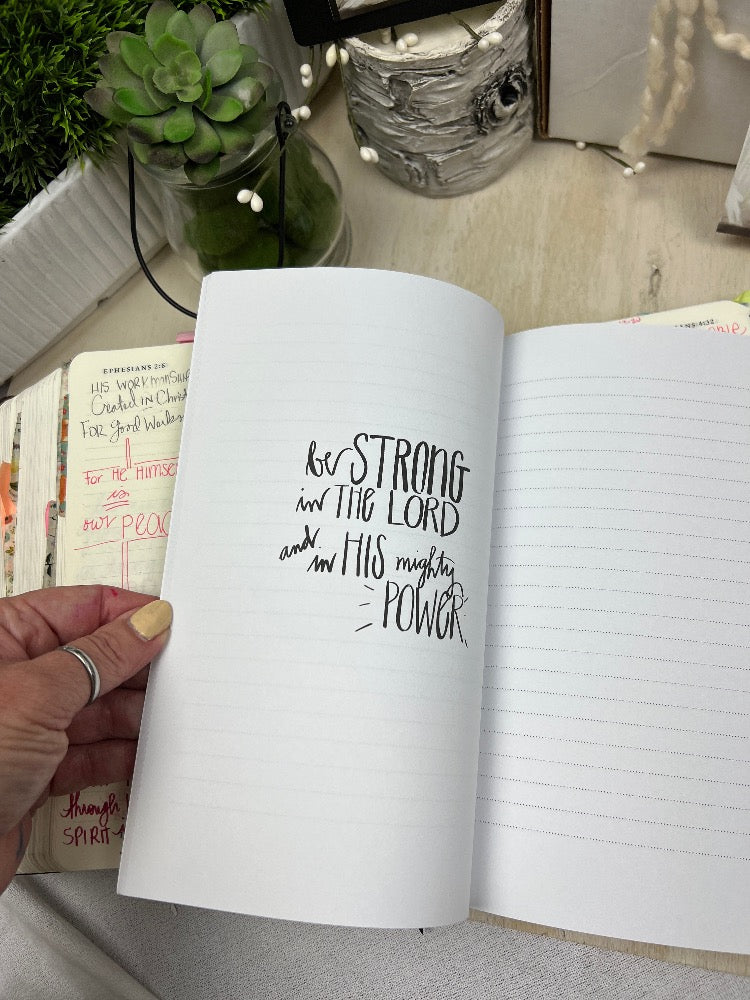 be STRONG
in THE LORD
and in HIS mighty
POWER
EPHESIANS 2:8
HIS WORKMANSHIP
Created IN Christ
FOR Good Works
For He Himself
is
our peac
through
SPIRIT